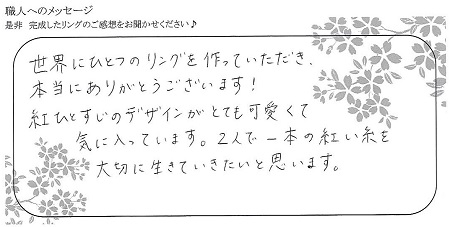 職人へのメッセージ
是非 完成したリングのご感想をお聞かせください♪
世界にひとつのリングを作っていただき、
本当にありがとうございます!
紅ひとすじのデザインがとても可愛くて
気に入っています。2人で一本の紅い糸を
大切に生きていきたいと思います。